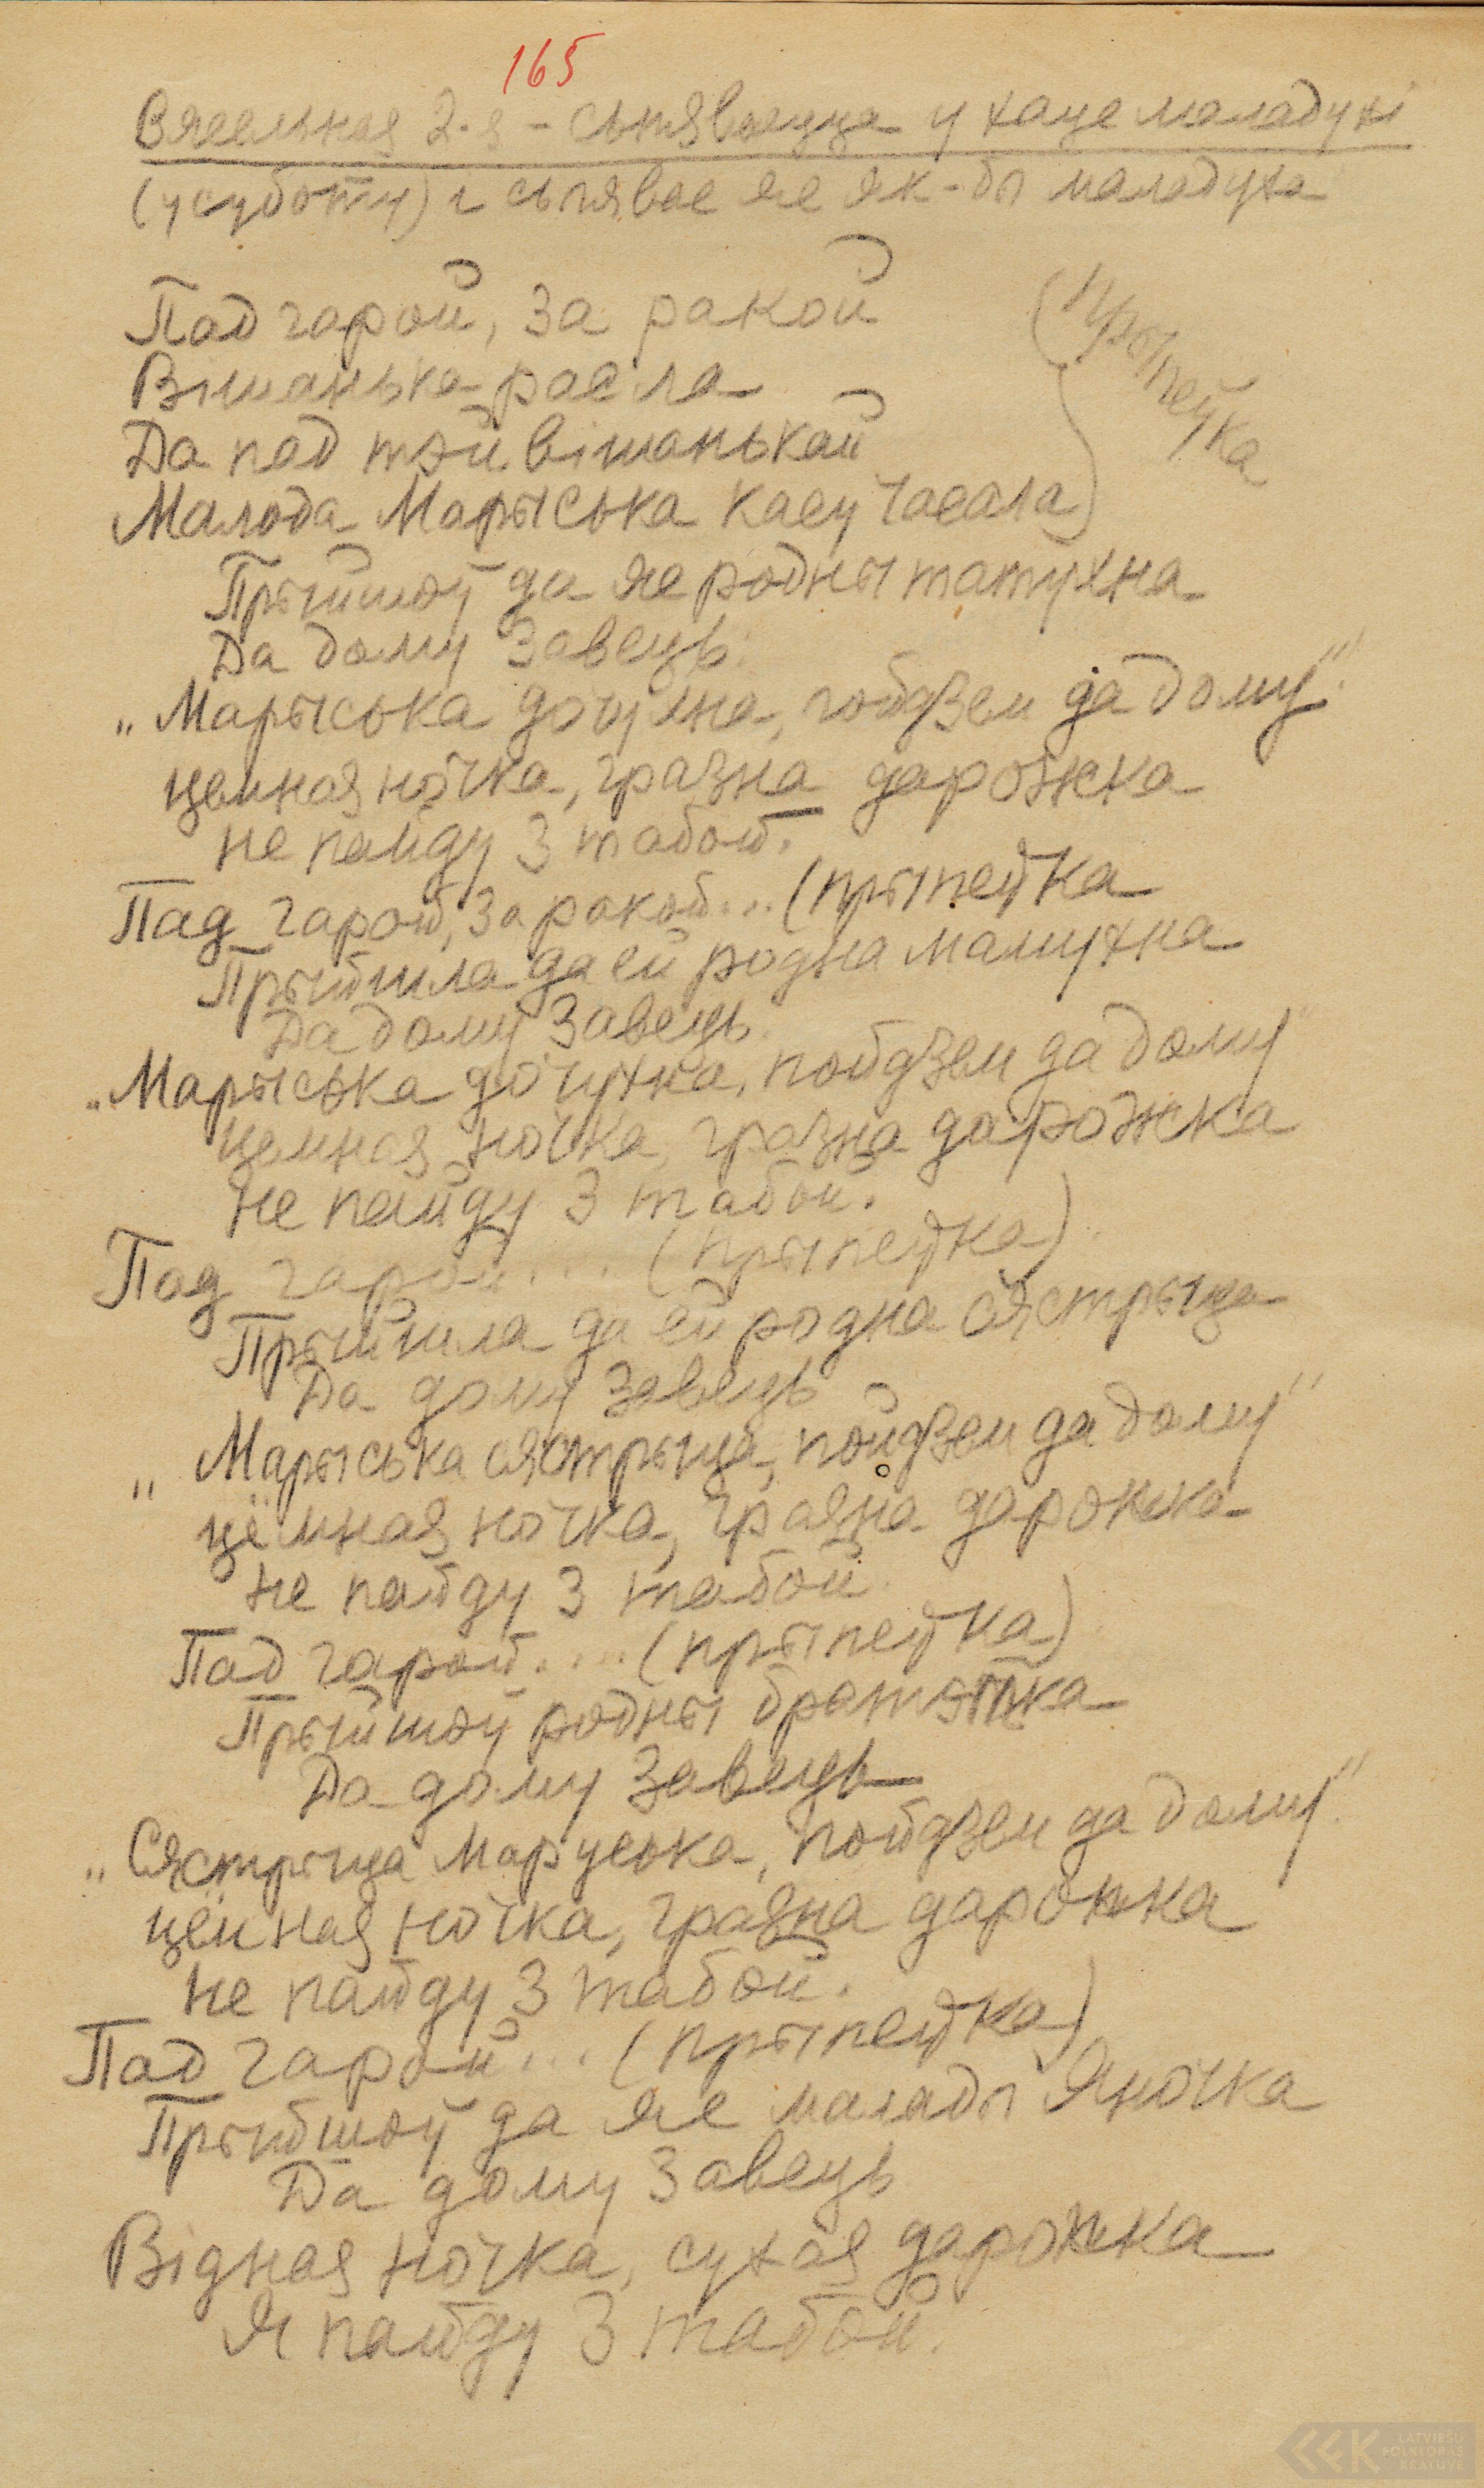 165
Вясельная 2-я - сьпяваецца у хаце маладухі
(у суботу) і сьпявае яе як-бы маладуха
Пад гарой, за ракой
Вішанька расла
Да пад тэй вішанькай
Малода Марыська касу часала)
(прыпеўка
Прыйшоў да яе родны татухна
Да дому завець:
„Марыська дочухна, пойдзем да дому"
цемная ночка, гразна дарожка
не пайду з табой.
Пад гарой, за ракой... (прыпеўка
Прыйшла да ей родна мамухна
Да дому завець.
„Марыська дочухна, пойдзем да дому"
цемная ночка, гразна дарожка
Не пайду з табой.
Пад гарой.... (прыпеўка).
Прыйшла да ей родна сястрыца
Да дому завець
„Марыська сястрыца, пойдзем да дому"
цёмная ночка, гразна дарожка
не пайду з табой.
Пад гарой..... (прыпеўка)
Прыйшоў родны братэтка
Да дому завець
„Сястрыца Маруська, пойдзем да дому"
цёмная ночка, гразна дарожка
не пайду з табой.
Пад гарой... (прыпеўка)
Прыйшоў да яе малады Яночка
Да дому завець
Відная ночка, сухая дарожка
Я пайду з табой.
LATVIEŠU
FOLKLORAS
KRĀTUVE